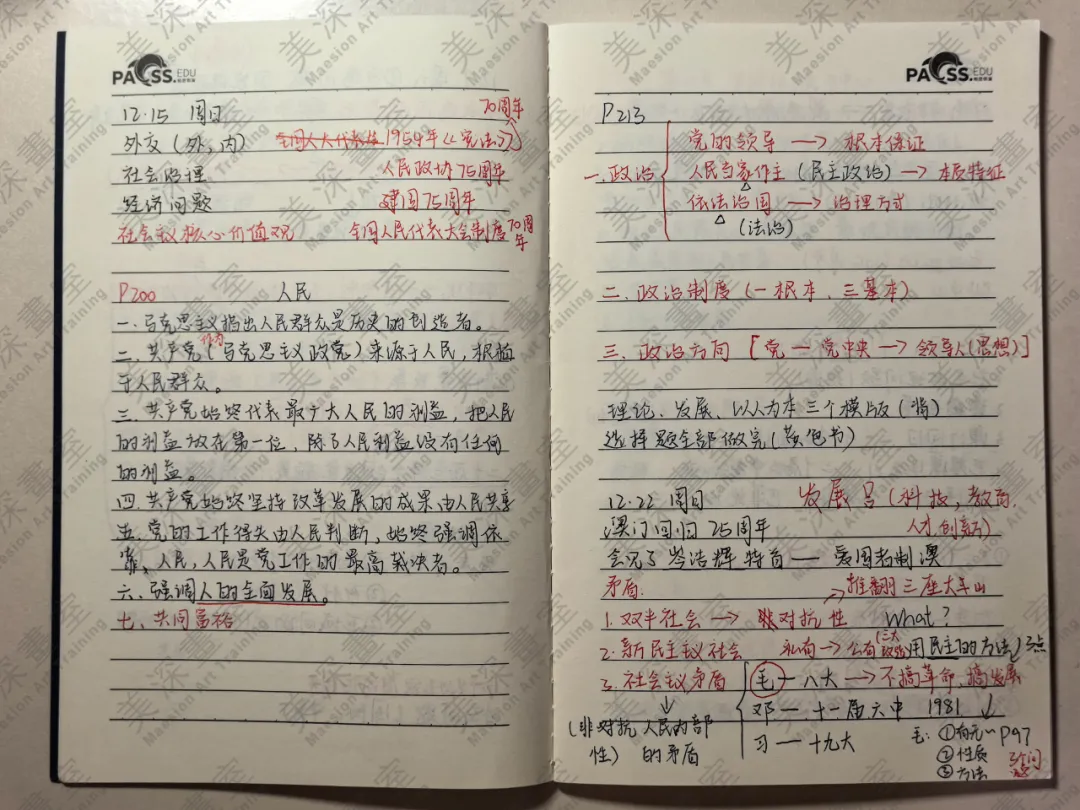 PASS.EDU
12.15 周日 70周年
外交（外，内） 全国人大代表 1954年《宪法》
社会治理 人民政协75周年
经济问题 建国75周年
社会主义核心价值观 全国人民代表大会制度70周年
P200 人民
一.马克思主义指出人民群众是历史的创造者。
作为
二.共产党（马克思主义政党）来源于人民，根植
于人民群众。
三.共产党始终代表最广大人民的利益，把人民
的利益放在第一位，除了人民利益没有任何
的利益。
四.共产党始终坚持改革发展的成果由人民共享
五.党的工作得失由人民判断，始终强调依
靠人民，人民是党工作的最高裁决者。
六.强调人的全面发展。
七.共同富裕
PASS.EDU
P213
党的领导 → 根本保证
一.政治 人民当家作主（民主政治）→ 本质特征
依法治国 → 治理方式
（法治）
二.政治制度（一根本，三基本）
三.政治方向［党 — 党中央 → 领导人（思想）］
理论、发展、以人为本三个模版（背）
选择题全部做完（黄包书）
12.22 周日 发展名（科技，教育，
澳门回归25周年 人才，创新）
会见了岑浩辉特首 — 爱国者制澳
矛盾. 推翻三座大山
1.双半社会 → 对抗性 What？
2.新民主主义社会 私有→公有 三大 用民主的方法 3点
3.社会主义矛盾 毛 — 八大 → 不搞革命，搞发展
邓 — 十一届六中 1981
（非对抗性） 人民内部的矛盾 习 — 十九大
毛：①有无 P97
②性质
③方法
美深畫室
Maesion Art Training